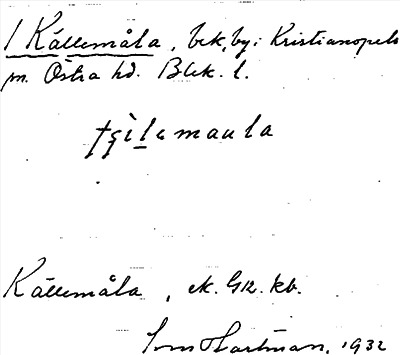 1 Källemåla, bek, by i Kristianopels
sn. Östra hd. Blek. l.
tʂìlemaula
Källemåla, ek. G12. kb.
Hartman, 1932